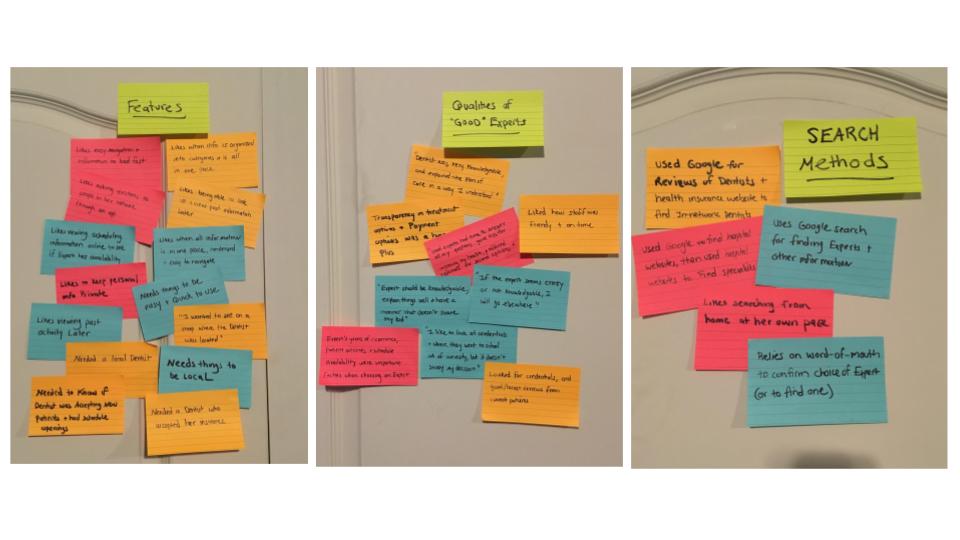 Features
Likes easy navigation +
information to load fast
Likes when info is organized
into categories + is all
in one place.
Likes asking questions to
people in her network
through an app
Likes being able to
later
Likes viewing scheduling
information online to see
if Expert has availability
Likes when all information
is in one place, condensed
+ easy to navigate
Likes to keep personal
info Private
Needs things to be
easy + Quick to use
Likes viewing past
activity Later
"I wanted to see on a
map where the Dentist
was located"
Needed a local Dentist
Needs things to
be local
Needed to Know if
Dentist was Accepting New
Patients + had schedule
openings
Needed a Dentist who
accepted her insurance
Qualities of
"GOOD" Experts
"Dentist was very knowledgeable,
and explained the plan of
care in a way I understood"
Transparency in treatment
options + Payment
options was a
plus
Liked how staff was
friendly + on time
"Expert should be knowledgeable,
explain things well + have a
manner that doesn't
"If the expert seems crazy
or not knowledgeable, I
will go elsewhere"
Expert's years of experience,
patient reviews, + schedule
availability were important
factors when choosing an Expert
"I like to look at credentials
+ where they went to school
out of curiosity, but it doesn't
my decision"
Looked for credentials, and
good/honest reviews from
current patients
SEARCH
Methods
Used Google for
Reviews of Dentists +
health insurance website to
find In-network Dentists
Used Google to find hospital
websites, then used hospital
websites to find specialists
Uses Google search
for finding Experts +
other information
Likes searching from
home at her own pace
Relies on word-of-mouth
to confirm choice of Expert
(or to find one)